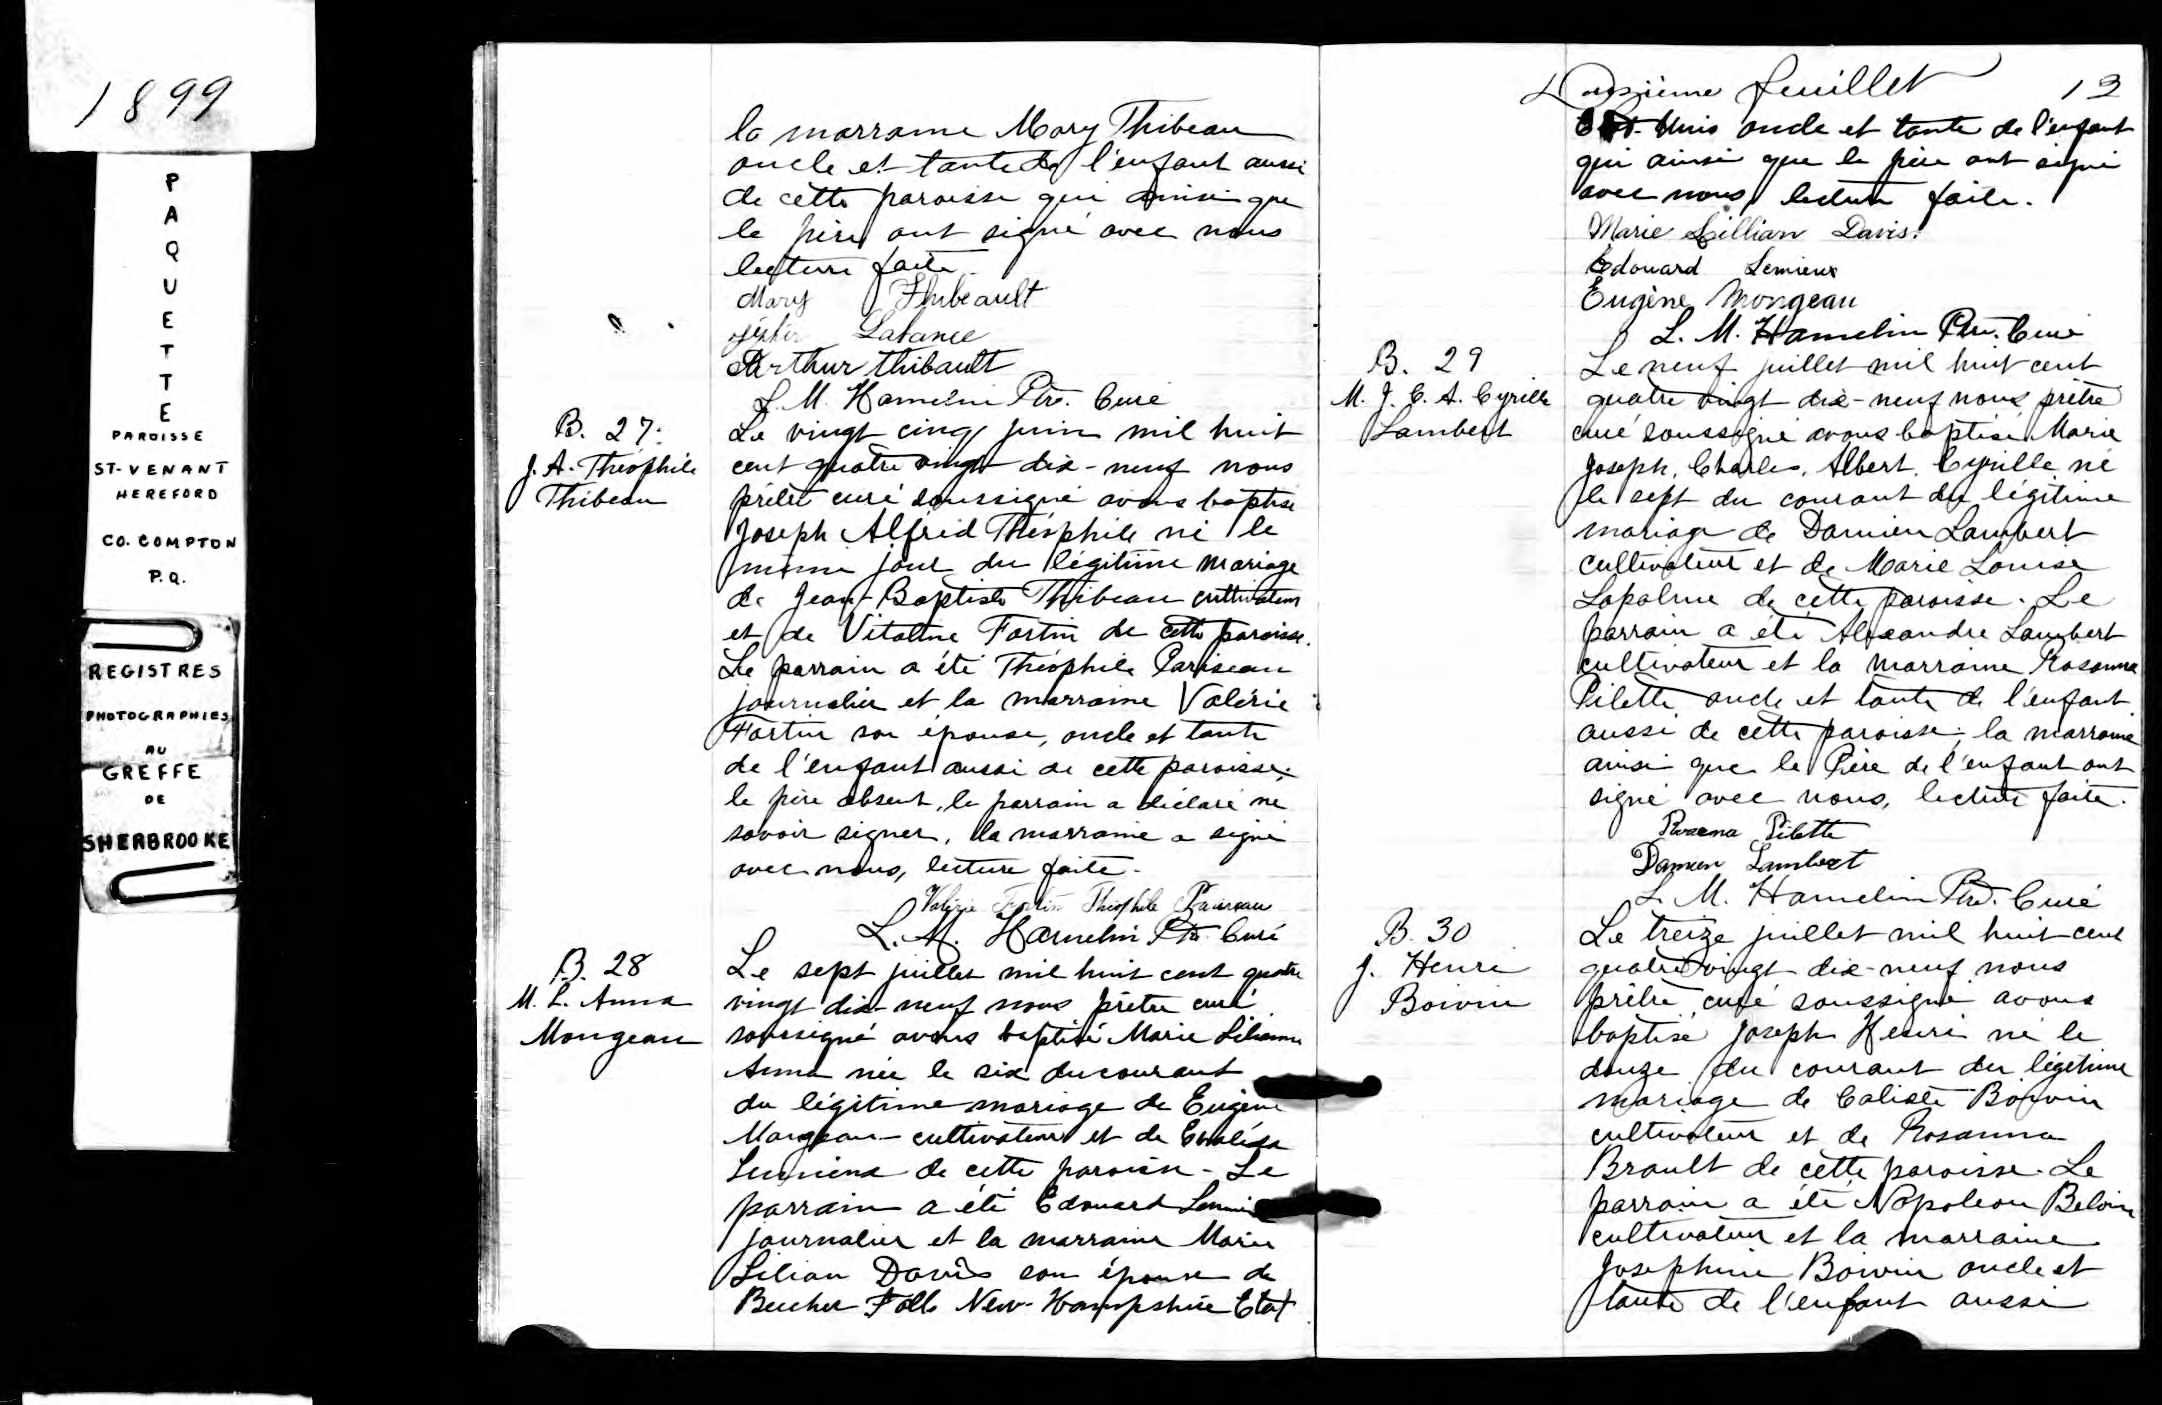 1899
PAQUETTE
PAROISSE
ST-VENANT
HEREFORD
CO. COMPTON
P.Q.
REGISTRES
PHOTOGRAPHIES
AU
GREFFE
DE
SHERBROOKE
la marraine Mary Thibeau
oncle et tante de l'enfant aussi
de cette paroisse qui ainsi que
le père ont signé avec nous
lecture faite.
Mary Thibeault
Labance
Arthur Thibault
L. M. Hamelin Ptre. Curé
B. 27.
J. A. Théophile
Thibeau
Le vingt cinq juin mil huit
cent quatre vingt dix-neuf nous
prêtre curé soussigné avons baptisé
Joseph Alfred Théophile né le
même jour du légitime mariage
de Jean-Baptiste Thibeau cultivateur
et de Vitaline Fortin de cette paroisse.
Le parrain a été Théophile Pariseau
journalier et la marraine Valérie
Fortin son épouse, oncle et tante
de l'enfant aussi de cette paroisse.
le père absent, le parrain a déclaré ne
savoir signer, la marraine a signé
avec nous, lecture faite.
Valérie Fortin Théophile Pariseau
L. M. Hamelin Ptre. Curé
B. 28
M. L. Anna
Mongeau
Le sept juillet mil huit cent quatre
vingt dix-neuf nous prêtre curé
soussigné avons baptisé Marie Lilianne
Anna née le six du courant
du légitime mariage de Eugène
Mongeau cultivateur et de
Lemieux de cette paroisse - Le
parrain a été Edouard Lemieux
journalier et la marraine Marie
Lilian Davis son épouse de
Beecher Falls New-Hampshire Etat
Douzième feuillet 12
Unis oncle et tante de l'enfant
qui ainsi que le père ont signé
avec nous lecture faite.
Marie Lillian Davis.
Edouard Lemieux
Eugène Mongeau
L. M. Hamelin Ptre. Curé
B. 29
M. J. C. A. Cyrille
Lambert
Le neuf juillet mil huit cent
quatre vingt dix-neuf nous prêtre
curé soussigné avons baptisé Marie
Joseph, Charles, Albert, Cyrille né
le sept du courant du légitime
mariage de Damien Lambert
cultivateur et de Marie Louise
Lapalme de cette paroisse. Le
parrain a été Alexandre Lambert
cultivateur et la marraine Rosanna
Pilette oncle et tante de l'enfant
aussi de cette paroisse; la marraine
ainsi que le Père de l'enfant ont
signé avec nous, lecture faite.
Roseena Pilette
Damien Lambert
L. M. Hamelin Ptre. Curé
B. 30
J. Henri
Boivin
Le treize juillet mil huit cent
quatre vingt dix-neuf nous
prêtre curé soussigné avons
baptisé Joseph Henri né le
douze du courant du légitime
mariage de Caliste Boivin
cultivateur et de Rosanna
Brault de cette paroisse. Le
parrain a été Napoleon Beloin
cultivateur et la marraine
Josephine Boivin oncle et
tante de l'enfant aussi